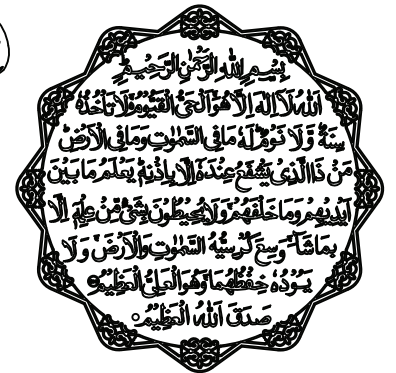 بِسْمِ اللهِ الرَّحْمٰنِ الرَّحِيْمِ
اَللهُ لَآ اِلٰهَ اِلَّا هُوَ اَلْحَيُّ الْقَيُّوْمُ لَا تَأْخُذُهٗ
سِنَةٌ وَّلَا نَوْمٌ لَهٗ مَا فِي السَّمٰوٰتِ وَمَا فِي الْاَرْضِ
مَنْ ذَا الَّذِيْ يَشْفَعُ عِنْدَهٗ اِلَّا بِاِذْنِهٖ يَعْلَمُ مَا بَيْنَ
اَيْدِيْهِمْ وَمَا خَلْفَهُمْ وَلَا يُحِيْطُوْنَ بِشَيْءٍ مِّنْ عِلْمِهٖ اِلَّا
بِمَا شَآءَ وَسِعَ كُرْسِيُّهُ السَّمٰوٰتِ وَالْاَرْضَ وَلَا
يَـُٔوْدُهٗ حِفْظُهُمَا وَهُوَ الْعَلِيُّ الْعَظِيْمُ
صَدَقَ اللهُ الْعَظِيْمُ